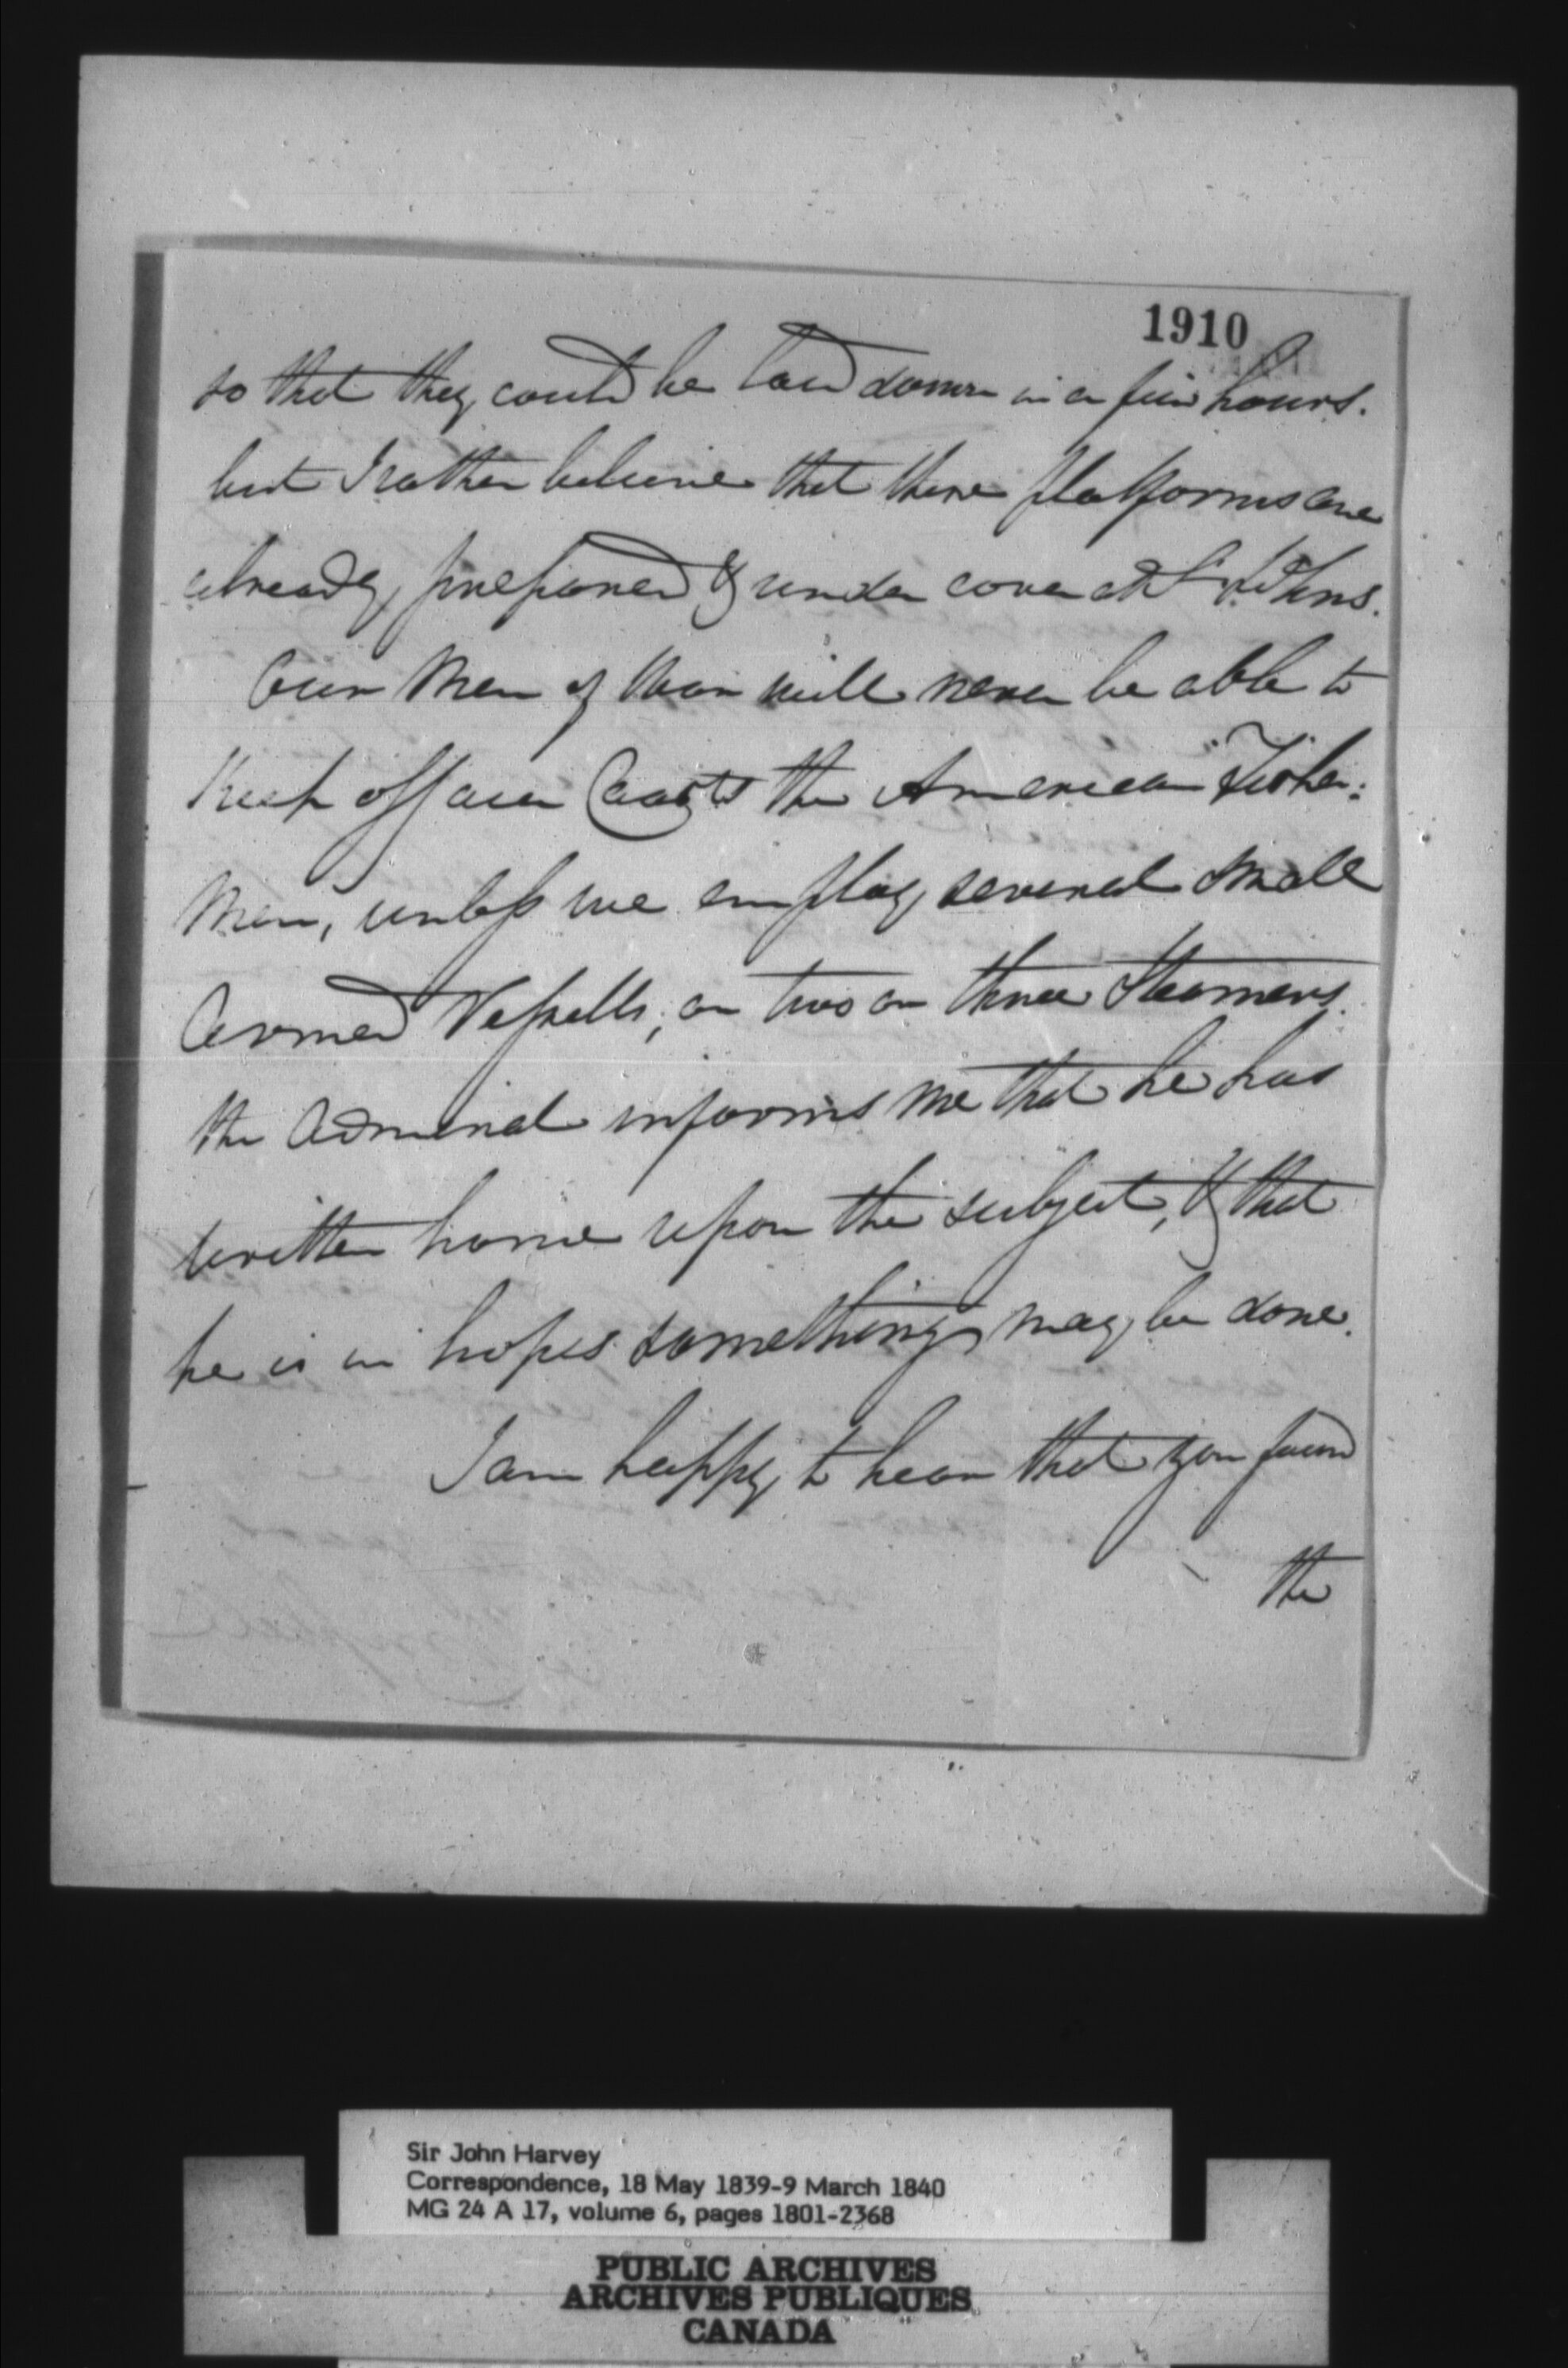 1910
so that they could be laid down in a few hours.
but I rather believe that there platforms are
already prepared & under cover at St Johns.
Our Men of War will never be able to
Keep off our Coasts the American Fisher:
Men, unless we employ several small
Armed Vessells, or two or three Steamers.
the Admiral informs me that he has
written home upon the subject, & that
he is in hopes something may be done.
I am happy to hear that you found
the
Sir John Harvey
Correspondence, 18 May 1839-9 March 1840
MG 24 A 17, volume 6, pages 1801-2368
PUBLIC ARCHIVES
ARCHIVES PUBLIQUES
CANADA